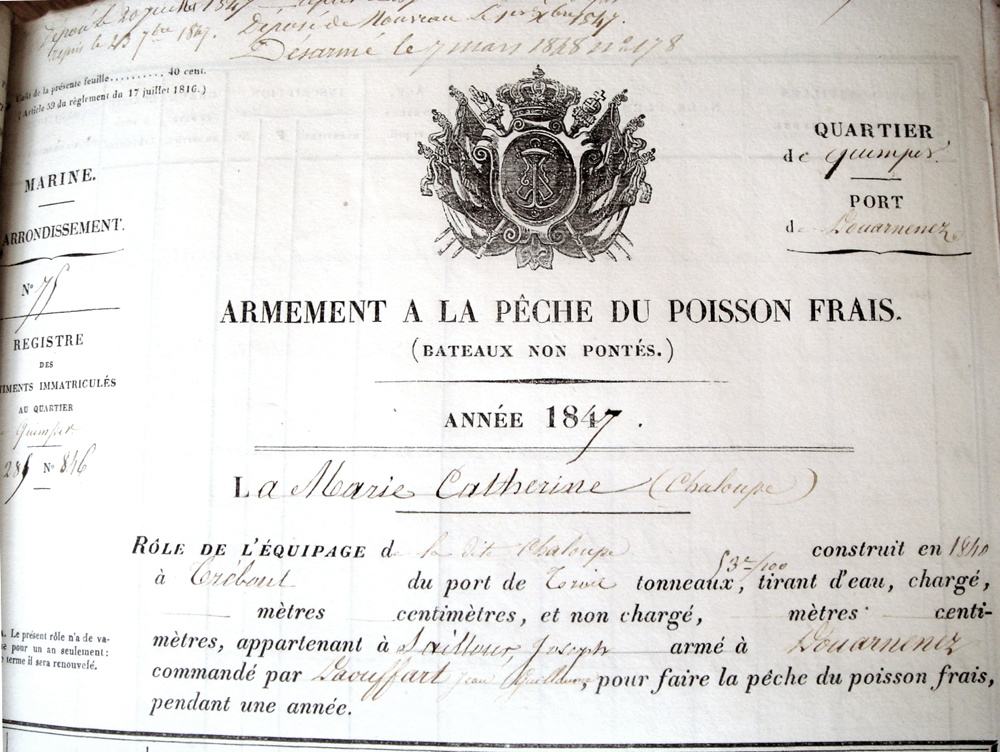 Déposé le 20 juillet 1847
Depuis le 23 7bre 1847. Déposé de Nouveau le 1er Xbre 1847.
Désarmé le 7 mars 1848 n° 178
de la présente feuille.......... 40 cent.
(Article 59 du règlement du 17 juillet 1816.)
MARINE.
ARRONDISSEMENT.
N° 75
REGISTRE
DES
TIMENTS IMMATRICULÉS
AU QUARTIER
Quimper
N° 846
QUARTIER
de Quimper.
PORT
de Douarnenez
ARMEMENT A LA PÊCHE DU POISSON FRAIS.
(BATEAUX NON PONTÉS.)
ANNÉE 1847.
La Marie Catherine (Chaloupe)
RÔLE DE L'ÉQUIPAGE de la dite Chaloupe construit en 1840
à Tréboul du port de Trois tonneaux, 53/100 tirant d'eau, chargé,
mètres centimètres, et non chargé, mètres centi-
mètres, appartenant à Joseph armé à Douarnenez
commandé par Daouffart Jean Guillaume, pour faire la pêche du poisson frais,
pendant une année.
A. Le présent rôle n'a de va-
pour un an seulement:
terme il sera renouvelé.